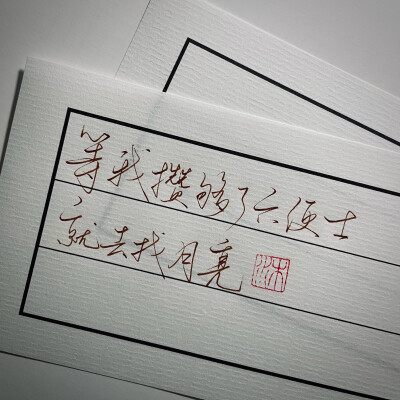 等我攒够了六便士
就去找月亮